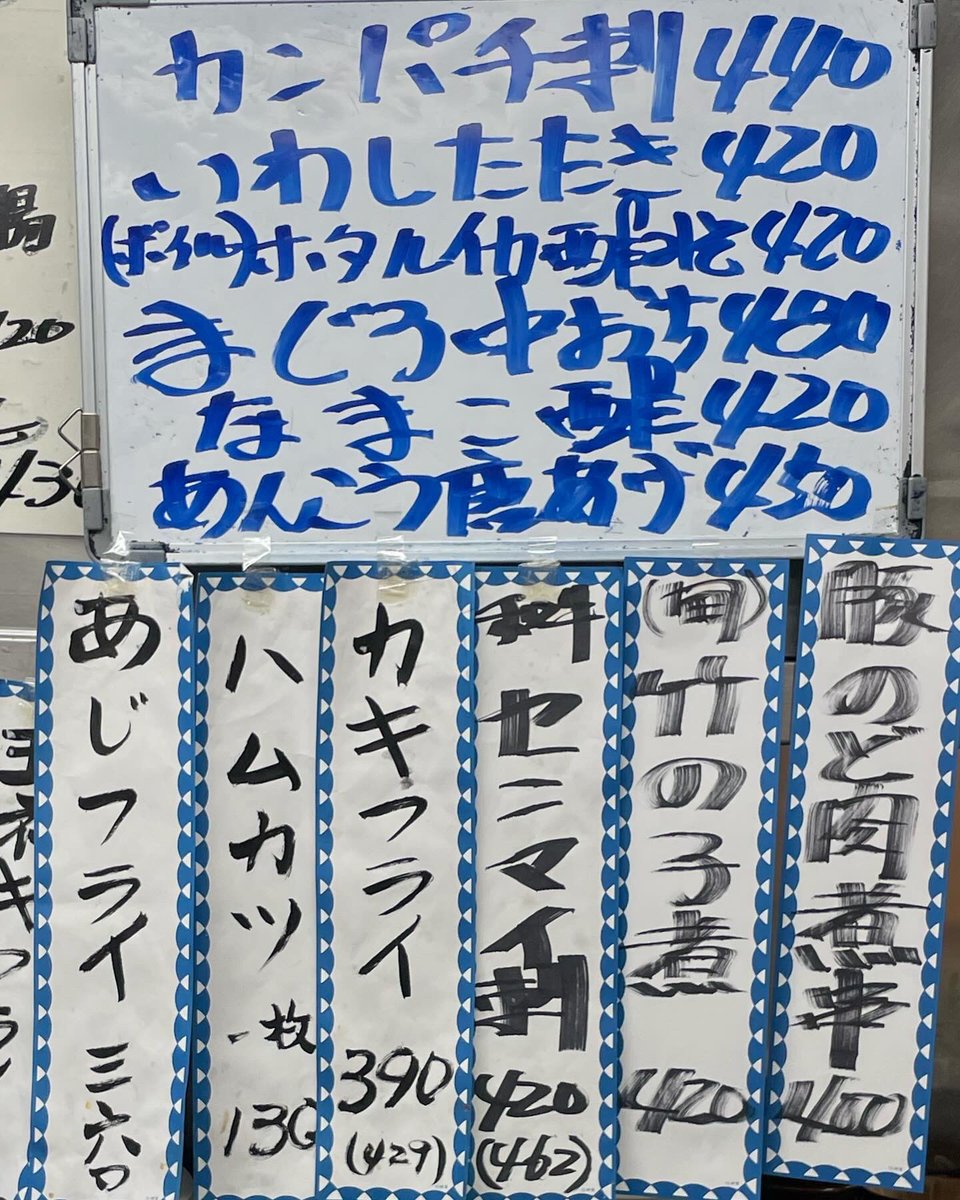 カンパチ刺 440
いわしたたき 420
(ボイル)ホタルイカ酢みそ 420
まぐろ中おち 480
なまこ酢 420
あんこう唐あげ 450
のど肉煮串 400
(旬)竹の子煮 420
センマイ刺 420 (462)
カキフライ 390 (429)
ハムカツ 一枚 130
あじフライ 三六〇